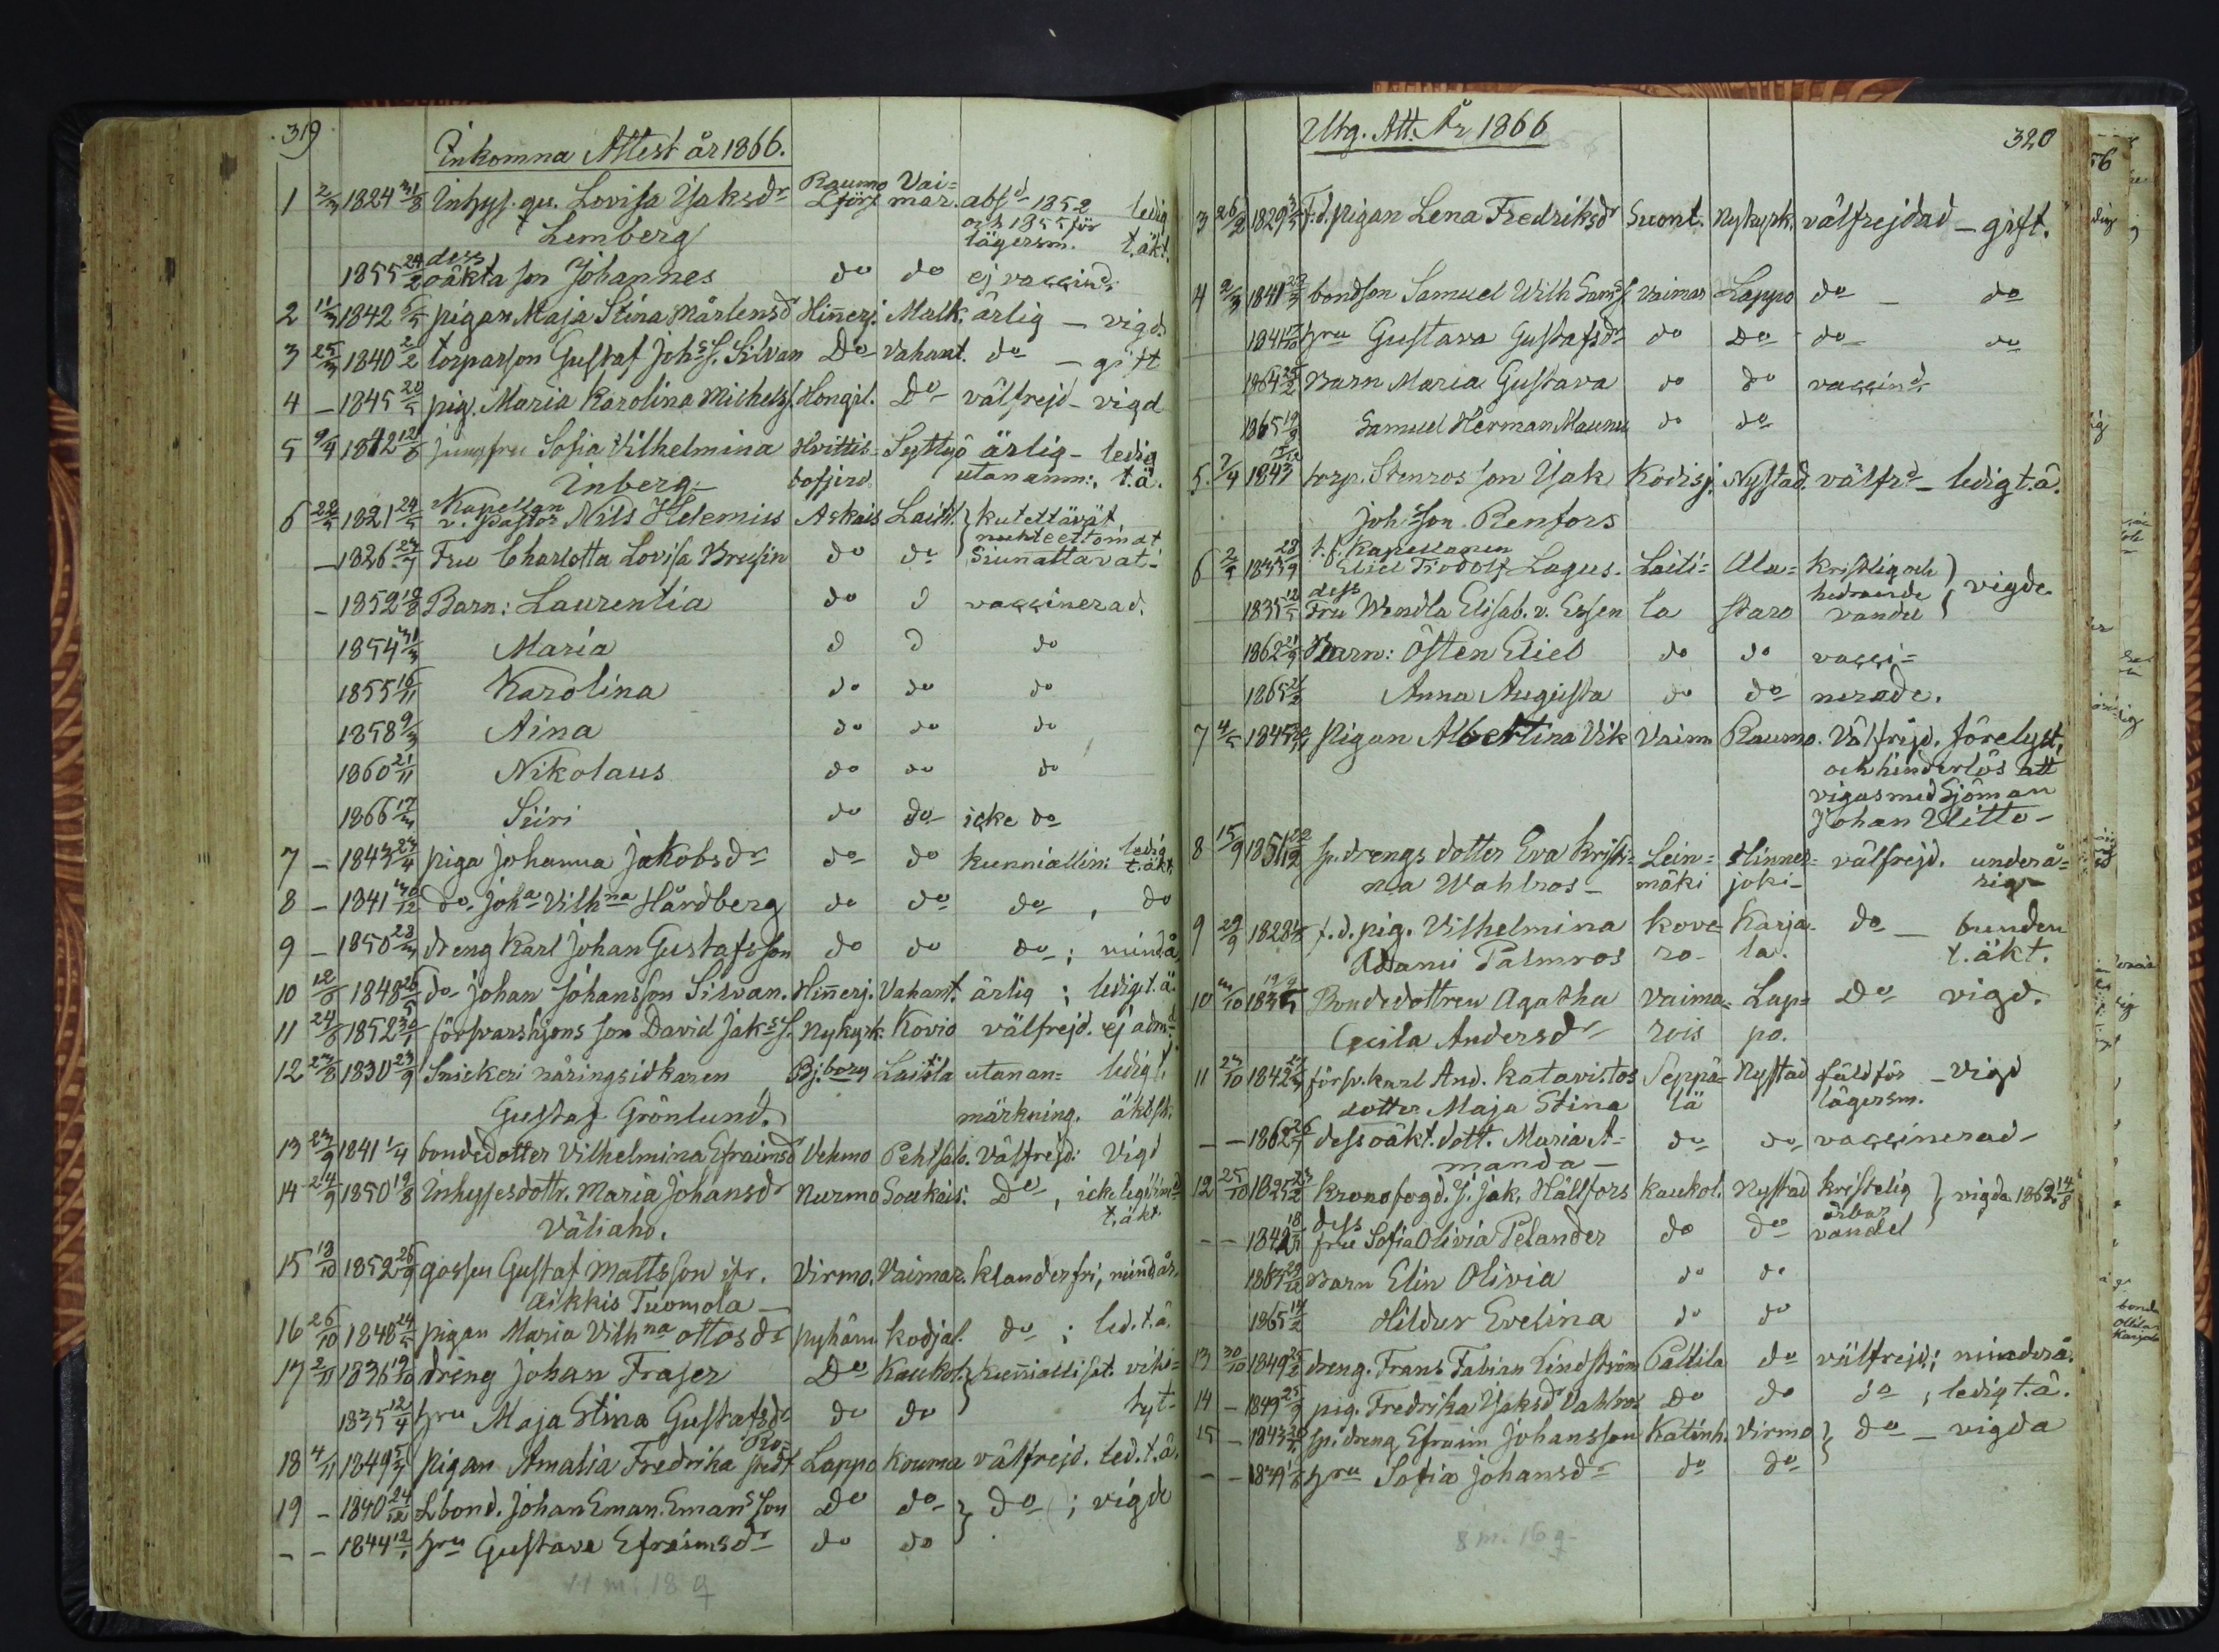 319
Inkomna Attest år 1866.
1 2/3 1824 31/8 Inhys. qu. Lovisa Isaksdr Raumo Lförs. Vai=mar. absd 1852 ledig
Lemberg och 1855 för lägersm. t. äkt.
1855 24/2 dess oäkta son Johannes do do ej vaccind.
2 11/3 1842 6/5 pigan Maja Stina Mårtensdr Hinnerj. Malk. ärlig – vigd
3 25/3 1840 2/2 torparson Gustaf Johs S. Silvan Do Vahant. do – gift
4 – 1845 20/5 pig. Maria Karolina Michelsd. Hongil. Do välfrejd – vigd
5 9/4 1842 12/6 jungfru Sofia Vilhelmina Hvittis= Lyttyö ärlig – ledig
Inberg bofjird utan anm:, t. ä.
6 22/5 1821 24/5 Kapellan v. pastor Nils Helenius Askais Laitil. kutettävät, nuhteettomat
– 1826 27/7 Fru Charlotta Lovisa Brusin do do Siunattavat.
– 1852 18/8 Barn: Laurentia do d vaccinerad.
1854 31/3 Maria d d do
1855 16/11 Karolina do do do
1858 9/3 Aina do do do
1860 21/11 Nikolaus do do do
1866 17/3 Siiri do do icke do
7 – 1843 27/4 piga Johanna Jakobsdr do do kunniallin: ledig t. äkt.
8 – 1841 30/12 do Joha Vilhna Hårdberg do do do, do
9 – 1850 28/3 dreng Karl Johan Gustafsson do do do; mind.å.
10 12/6 1848 26/5 do Johan Johansson Silvan. Hinnerj. Vahant. ärlig; ledig t. ä.
11 24/6 1852 30/1 försvarshjons son David Jaks S. Nykyrk. Kovio välfrejd. ej admd
12 27/8 1830 23/9 Snickeri näringsidkaren Bj.borg Laitila utan an= ledig t.
Gustaf Grönlund. märkning. äktsk.
13 23/9 1841 1/4 bondedotter Vilhelmina Efraimsdr Vehmo Pehtsalo. Välfrejd: Vigd
14 24/9 1850 19/8 Inhysesdottr. Maria Johansdr Nurmo Soukais. Do, icke legd
Väliaho. t. äkt.
15 13/10 1852 26/9 gossen Gustaf Mattsson ifr. Virmo. Vaimar. klanderfri, mind.år.
Aikkis Tuomola –
16 26/10 1848 24/5 pigan Maria Vilhna Ottosdr pyhäm. kodjal. do; led. t. ä.
17 2/11 1836 19/10 dreng Johan Fraser Do Kaukol. kunniallisat. vihi=
1835 12/4 hru Maja Stina Gustafsdr do do tyt.
18 4/11 1849 5/7 pigan Amalia Fredrika Ro=stedt Lappo Kouma välfrejd. led. t. ä.
19 – 1840 24/12 Lbond. Johan Eman. Emans Son Do do do; vigde
– – 1844 12/1 hru Gustava Efraimsdr do do
11 m. 18 q
Utg. Att. År 1866
320
3 26/2 1829 F. d. pigan Lena Fredriksdr Suont. Nykyrk. välfrejdad – gift.
4 2/3 1841 bondson Samuel Wilh Sams S. Vaimar Lappo do – do
1841 hru Gustava Gustafsdr do Do do do
1864 25/2 Barn Maria Gustava do do vaccind.
1865 19/9 Samuel Herman Maunu do do
5 7/4 1843 torp. Stenros son Isak Kodisj. Nystad. välfrd – ledig t. ä.
Johsson Renfors
6 2/5 28/9 t. f. Kapellanen Eliel Tiodolf Lagus. Laiti= Ala= kristlig och
1835 12/5 dess Fru Wendla Elisab. v. Essen la staro hedrande vandel vigde
1862 21/9 Barn: Östen Eliel do do vacci=
1865 21/2 Anna Augusta do do nerade.
7 4/5 1845 pigan Albertina Vik Vaim. Raumo. Välfrejd. förelyst,
och hinderlös att
vigas med Sjöman
Johan Uitto –
8 15/9 1851 22/12 sp. drengs dotter Eva Kristi= Lein= Hinner= välfrejd. underå=
na Wahlros – mäki joki – rig –
9 29/9 1828 f. d. pig. Vilhelmina Kove= Karja= do – bunden
Adami Palmros ro – la. t. äkt.
10 3/10 1835 19/9 Bondedottren Agatha Vaima= Lap= Do vigd.
Cecila Andersdr rois po.
11 23/10 1842 försv. karl And. Katavistos Seppä= Nystad fäld för – Vigd
dotter Maja Stina lä lägersm.
– – 1862 26/7 dess oäkt. dott. Maria A= do do vaccinerad –
manda –
12 25/10 1825 23/2 Kronofogd. G. Jak. Hällfors Kaukol. Nystad kristelig vigda 1862 14/8
– – 1842 18/7 dess fru Sofia Olivia Pelander do do ärbar vandel
1863 29/12 Barn Elin Olivia do do
1865 14/2 Hildur Evelina do do
13 30/10 1849 25/2 dreng. Frans Fabian Lindström Pattila do välfrejd; minderå.
14 – 1849 25/9 pig. Fredrika Isaksdr Vahlros Do do do, ledig t. ä.
15 – 1843 sp. dreng Efraim Johansson Katinh. Virmo do – vigda
– – 1839 hru Sofia Johansdr do do
8 m. 16 q